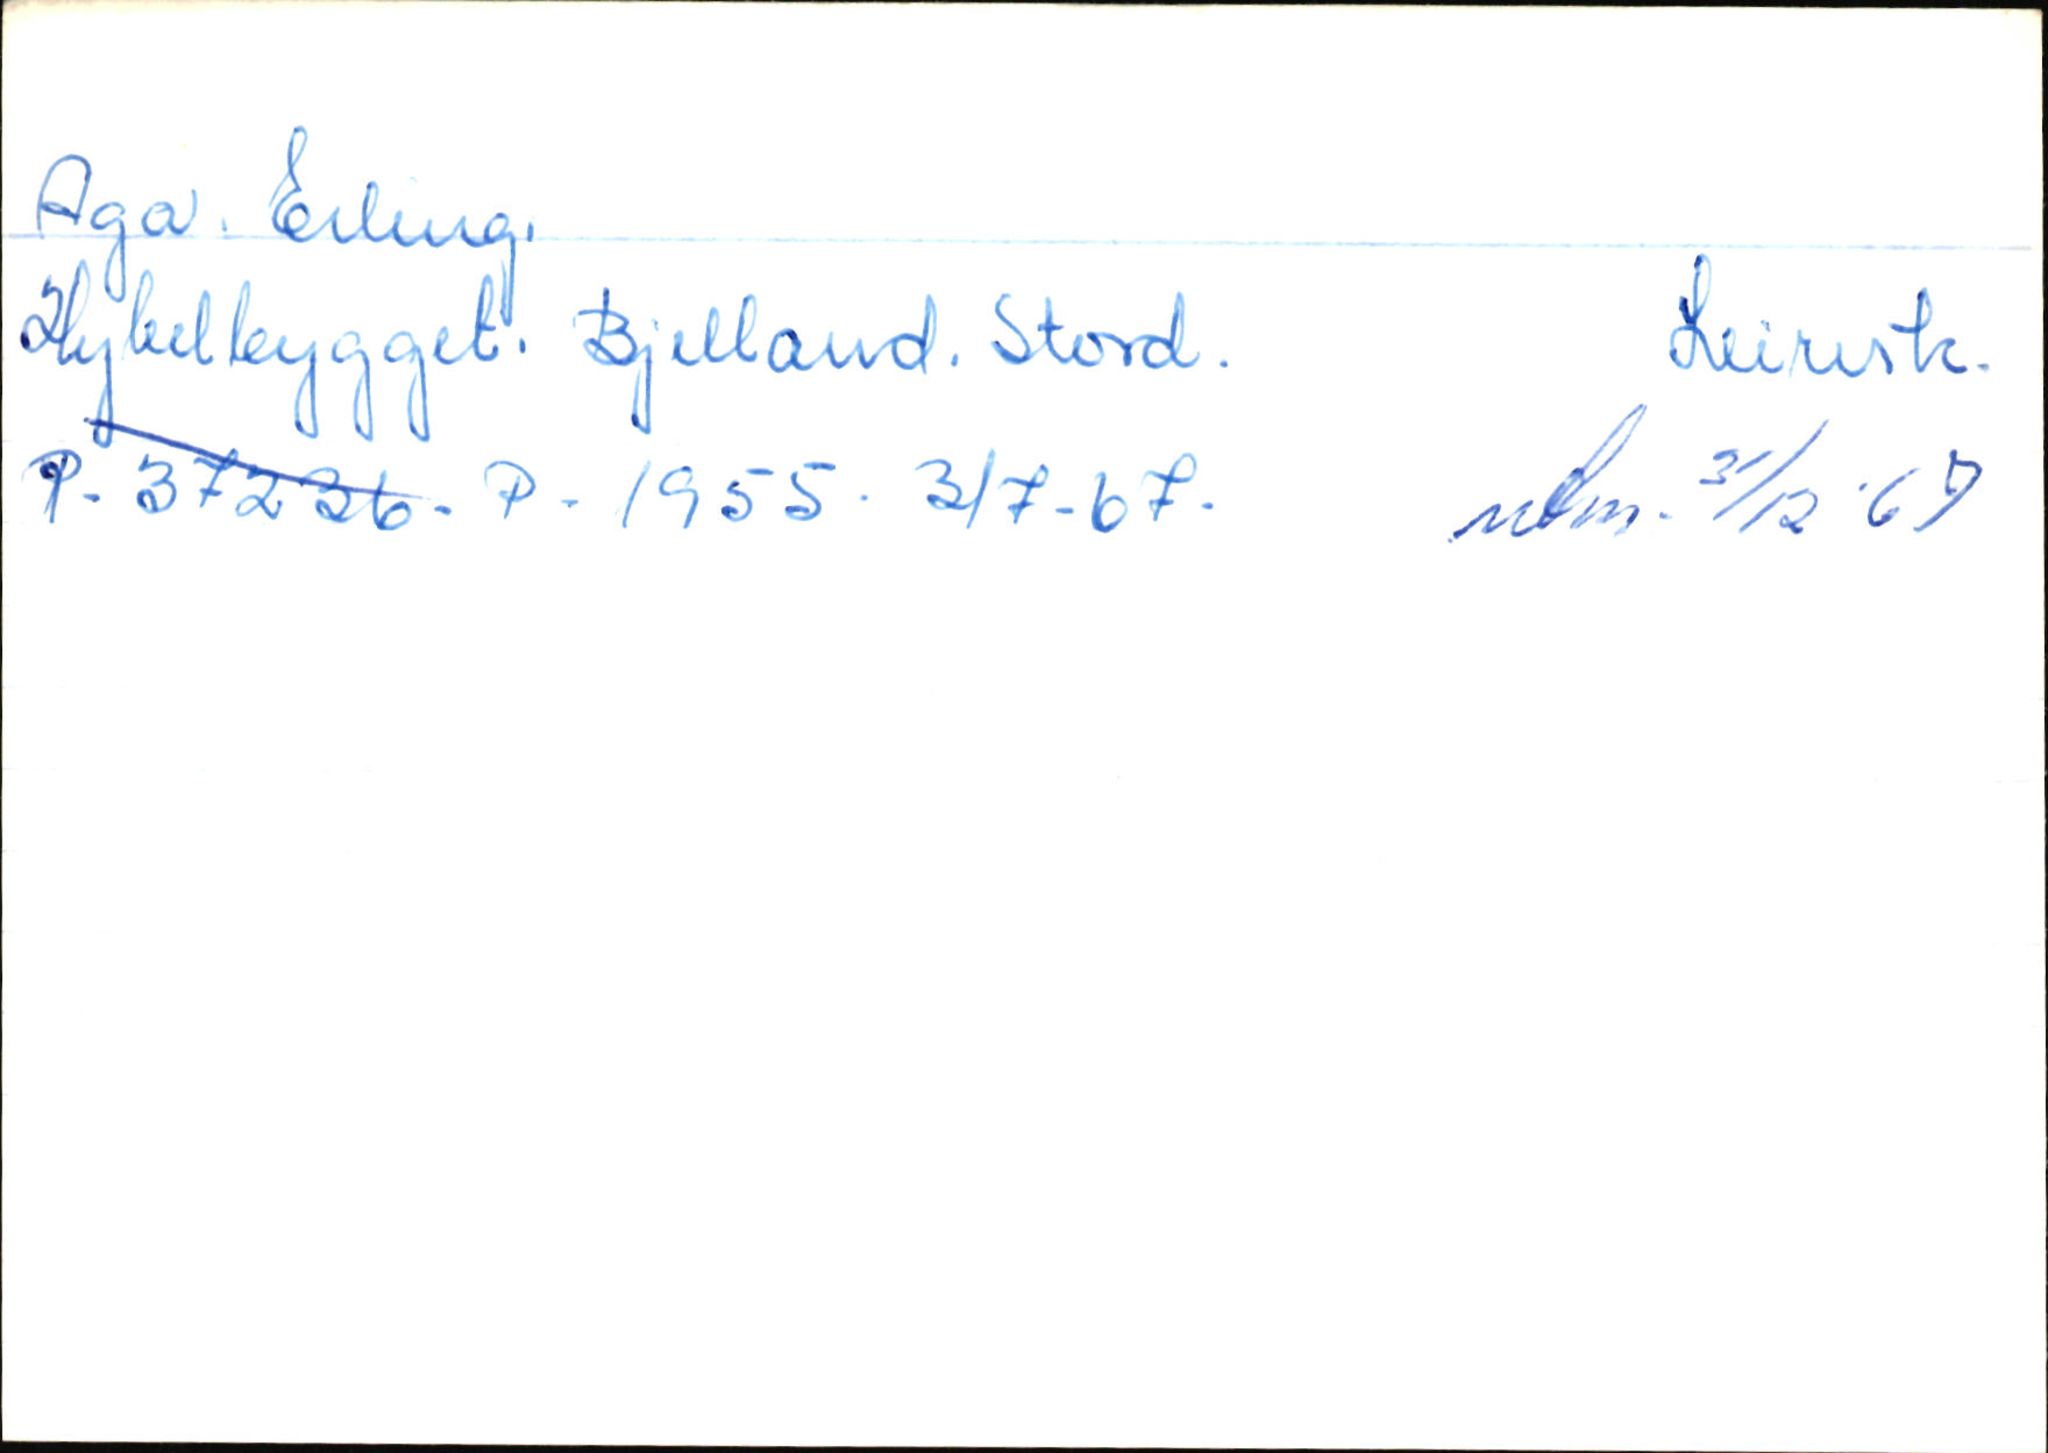 Aga. Erling.
Hybelbygget. Bjelland. Stord. Leirvik.
P- 37236. P- 1955. 3/7-67. utm. 31/12-67